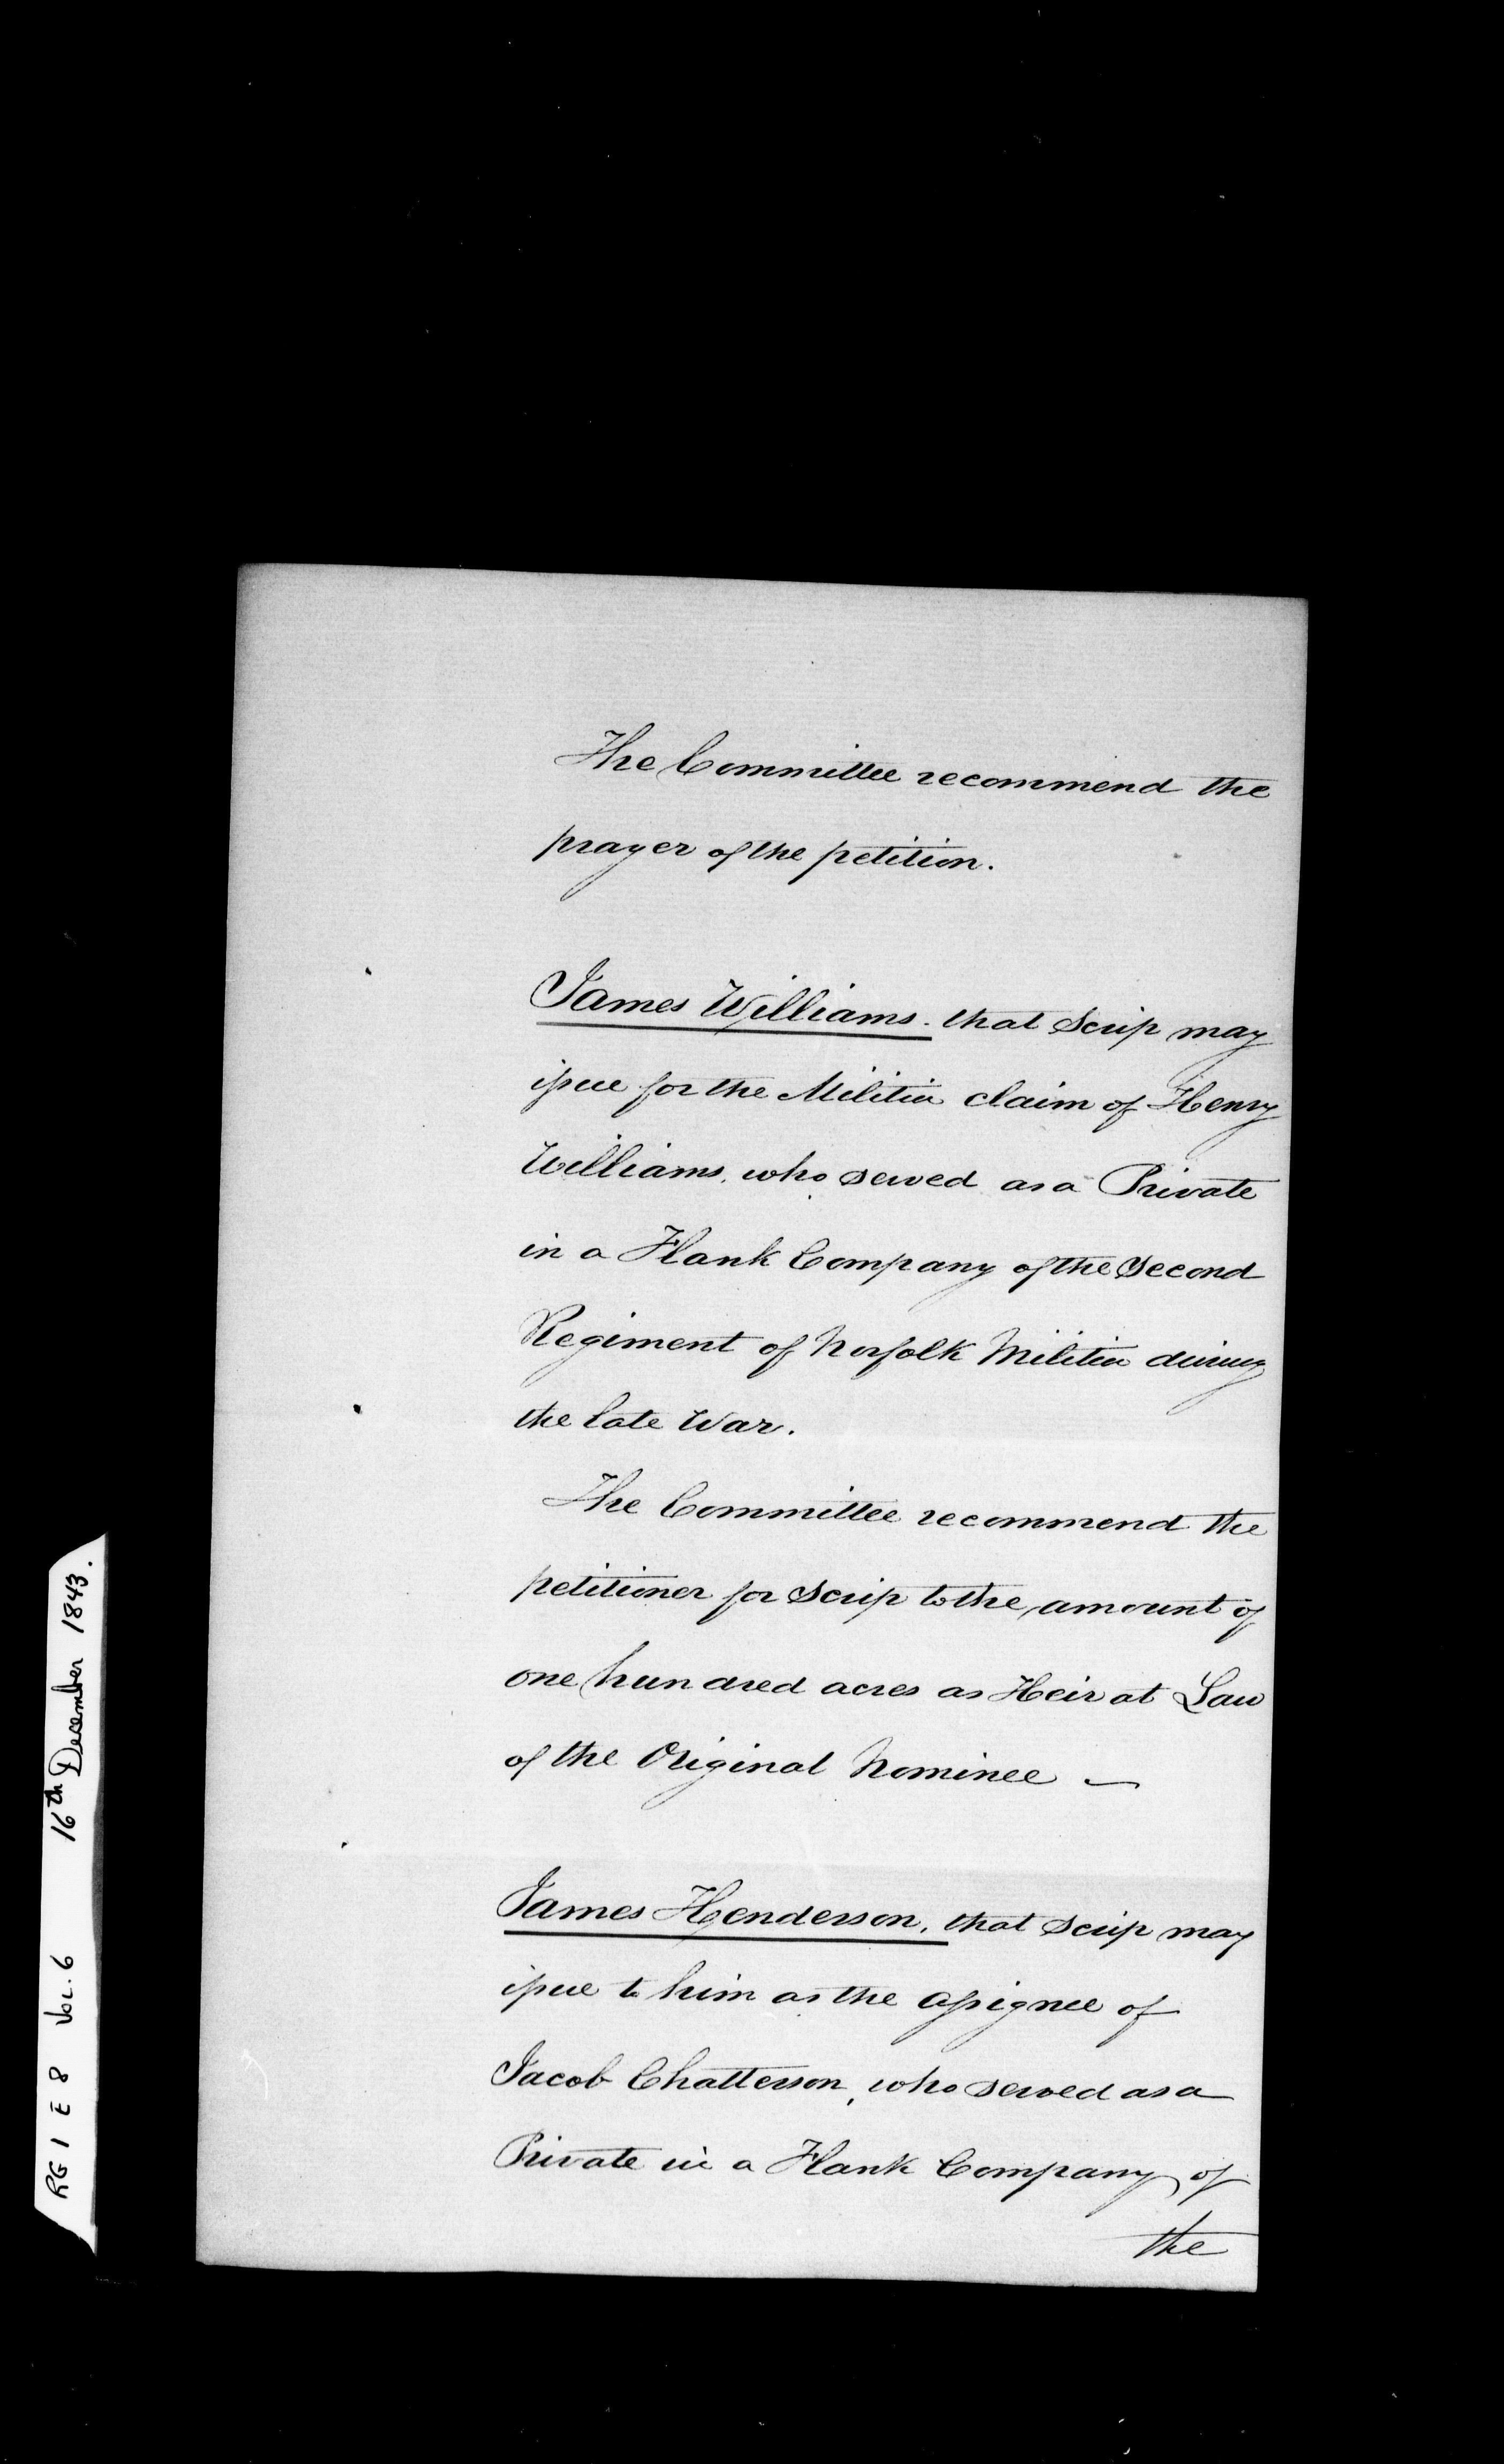 The Committee recommend the
prayer of the petition.
James Williams. that Scrip may
issue for the Militia claim of Henry
Williams, who served as a Private
in a Flank Company of the Second
Regiment of Norfolk Militia during
the late War.
The Committee recommend the
petitioner for Scrip to the amount of
one hundred acres as Heir at Law
of the Original Nominee —
James Henderson, that Scrip may
issue to him as the assignee of
Jacob Chatterson, who served as a
Private in a Flank Company of
the
RG 1 E 8 Vol. 6 16th December 1843.